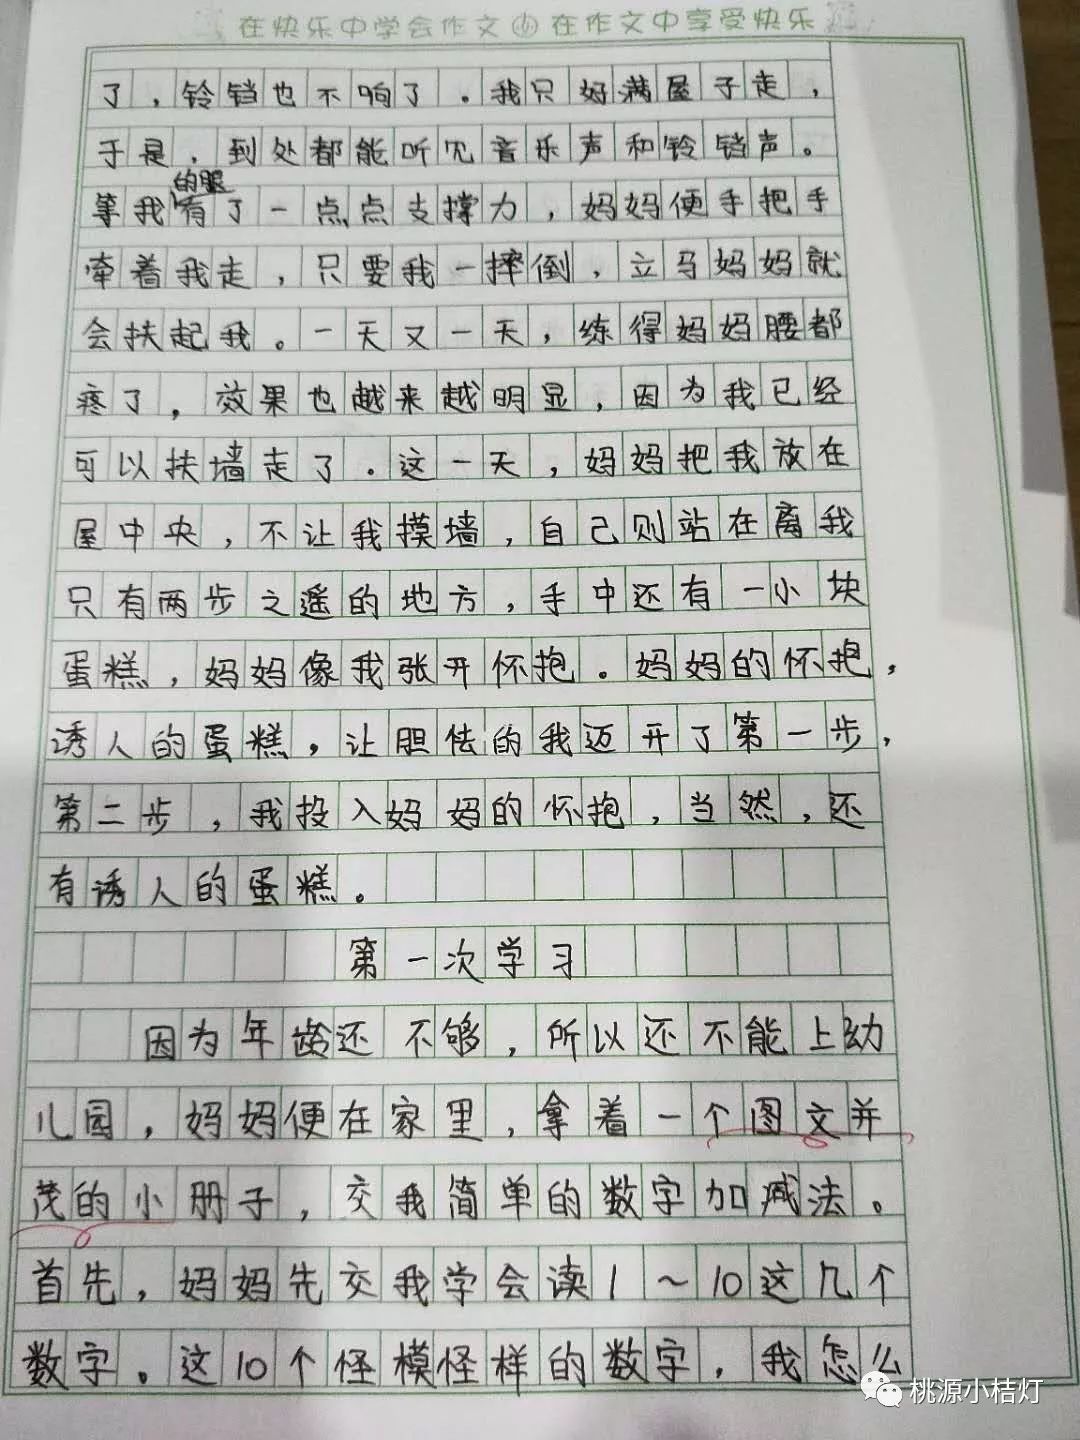 在快乐中学会作文 在作文中享受快乐
了，铃铛也不响了。我只好满屋子走，
于是，到处都能听见音乐声和铃铛声。
的腿
等我有了一点点支撑力，妈妈便手把手
牵着我走，只要我一摔倒，立马妈妈就
会扶起我。一天又一天，练得妈妈腰都
疼了，效果也越来越明显，因为我已经
可以扶墙走了。这一天，妈妈把我放在
屋中央，不让我摸墙，自己则站在离我
只有两步之遥的地方，手中还有一小块
蛋糕，妈妈像我张开怀抱。妈妈的怀抱，
诱人的蛋糕，让胆怯的我迈开了第一步，
第二步，我投入妈妈的怀抱，当然，还
有诱人的蛋糕。
第一次学习
因为年龄还不够，所以还不能上幼
儿园，妈妈便在家里，拿着一个图文并
茂的小册子，交我简单的数字加减法。
首先，妈妈先交我学会读1～10这几个
数字。这10个怪模怪样的数字，我怎么
桃源小桔灯